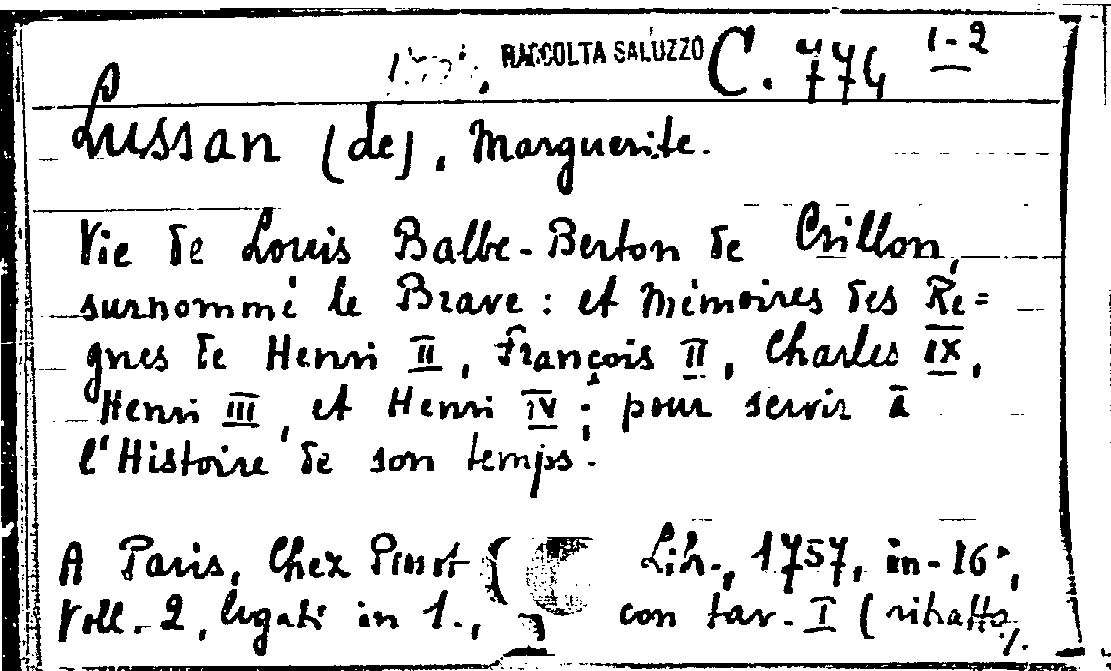 RACCOLTA SALUZZO C. 774 1-2
Lussan (de), Marguerite.
Vie de Louis Balbe-Berton de Crillon,
surnommé le Brave : et Mémoires des Re=
gnes de Henri II, François II, Charles IX,
Henri III, et Henri IV ; pour servir à
l'Histoire de son temps.
A Paris, Chez Pissot Lib., 1757, in-16°,
Voll. 2, legati in 1., con tav. I (ritratto
./.